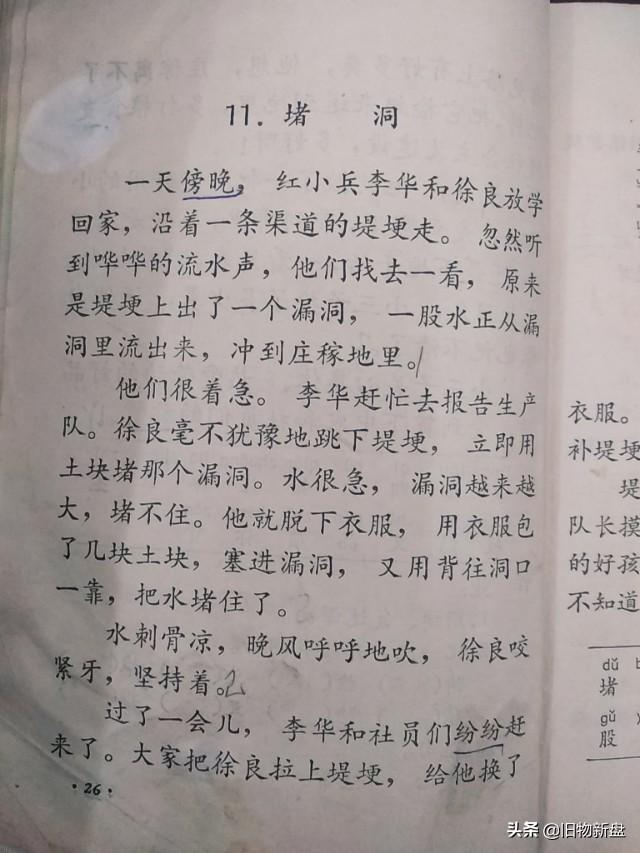 11. 堵 洞
一天傍晚，红小兵李华和徐良放学
回家，沿着一条渠道的堤埂走。忽然听
到哗哗的流水声，他们找去一看，原来
是堤埂上出了一个漏洞，一股水正从漏
洞里流出来，冲到庄稼地里。
他们很着急。李华赶忙去报告生产
队。徐良毫不犹豫地跳下堤埂，立即用
土块堵那个漏洞。水很急，漏洞越来越
大，堵不住。他就脱下衣服，用衣服包
了几块土块，塞进漏洞，又用背往洞口
一靠，把水堵住了。
水刺骨凉，晚风呼呼地吹，徐良咬
紧牙，坚持着。2
过了一会儿，李华和社员们纷纷赶
来了。大家把徐良拉上堤埂，给他换了
·26·
衣服。
补堤埂
堤
队长摸
的好孩
不知道
dǔ
堵
gǔ
股
头条 @旧物新盘